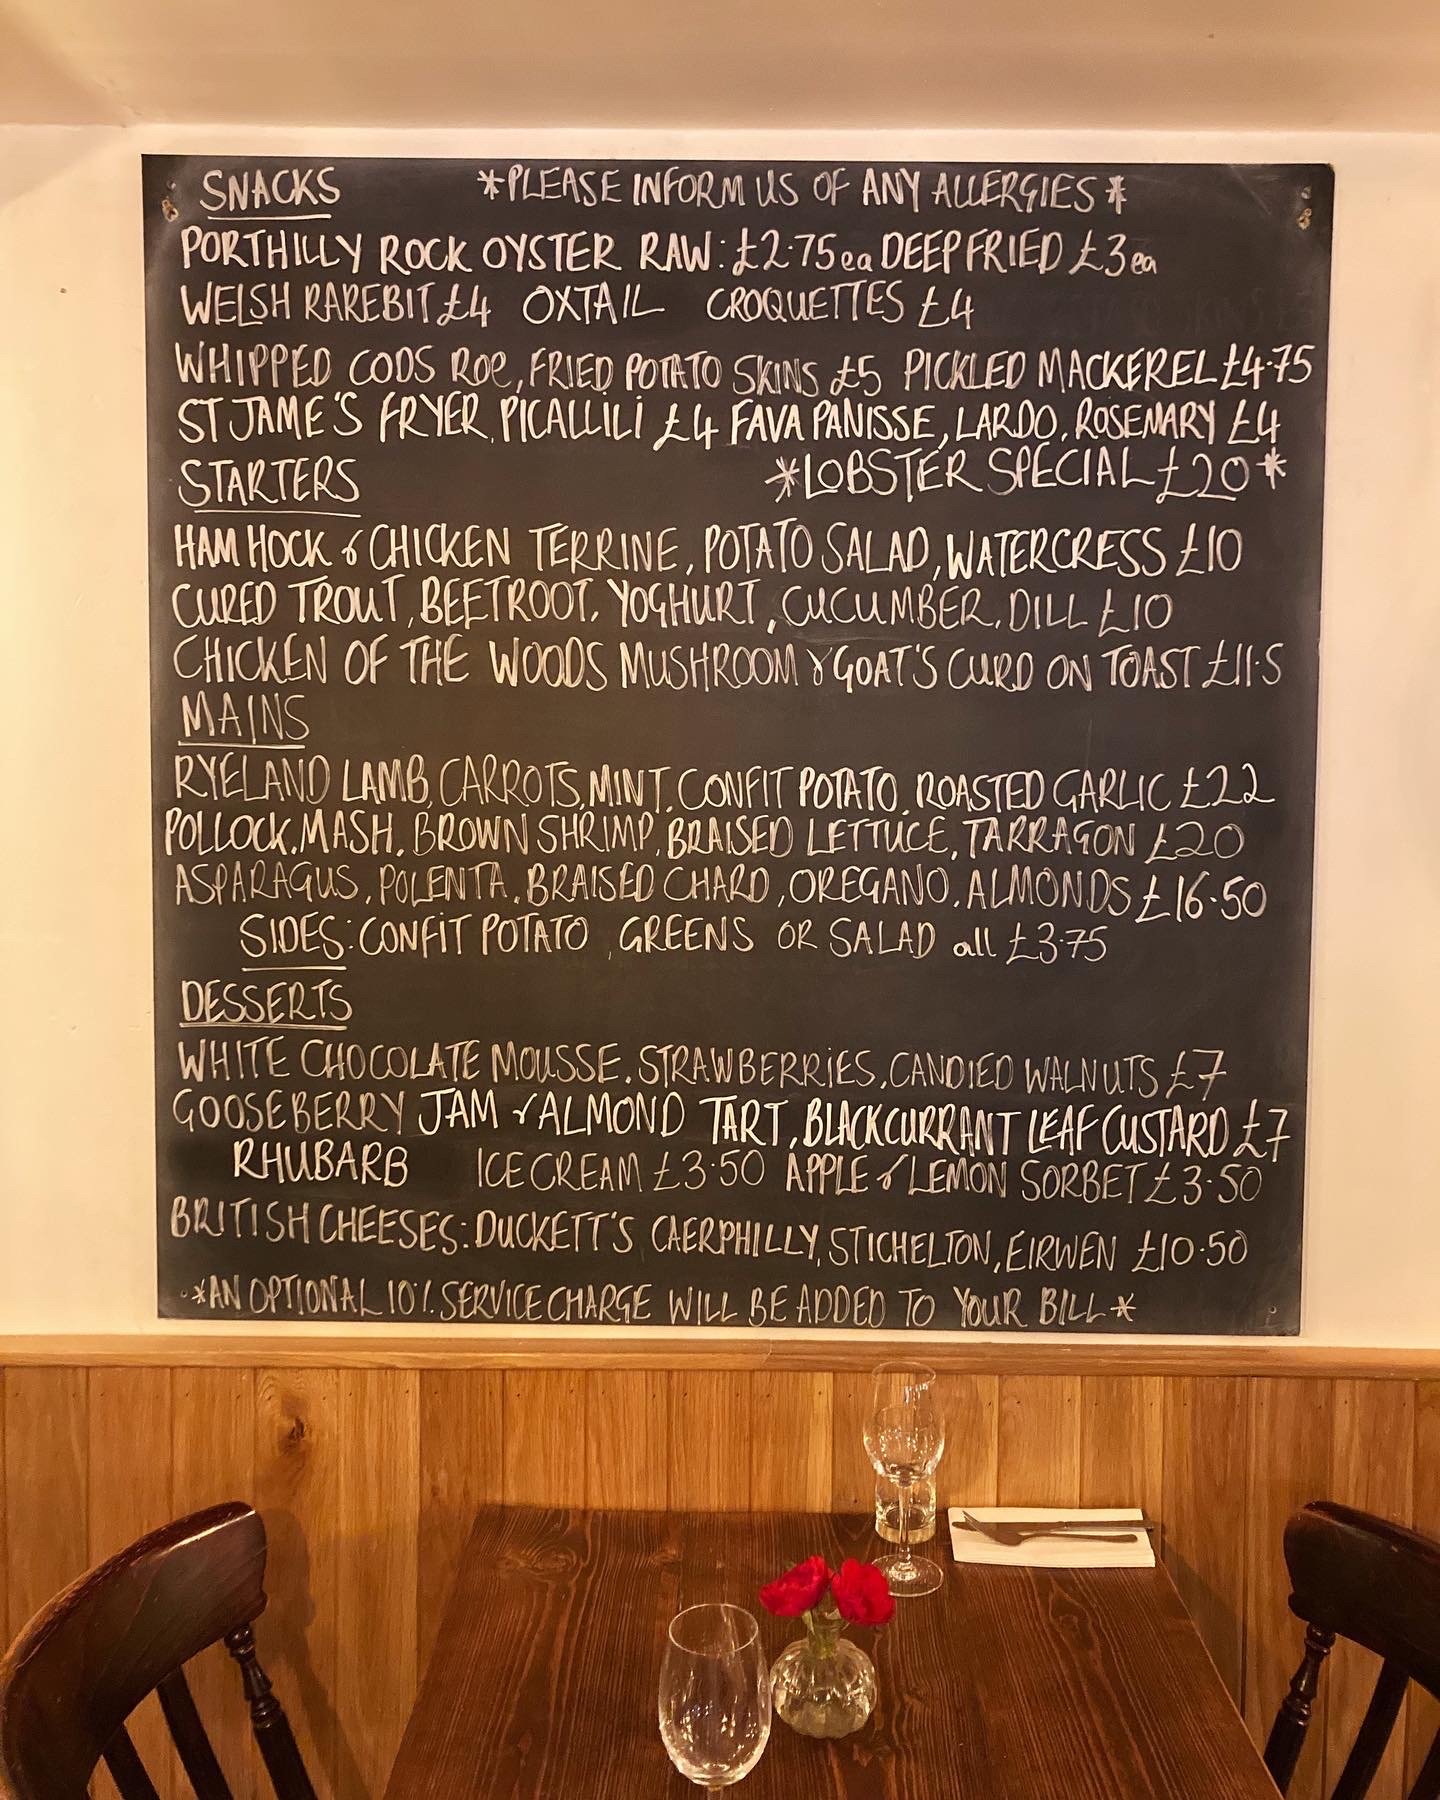 SNACKS *PLEASE INFORM US OF ANY ALLERGIES*
PORTHILLY ROCK OYSTER RAW: £2.75ea DEEP FRIED £3ea
WELSH RAREBIT £4 OXTAIL CROQUETTES £4
WHIPPED CODS ROE, FRIED POTATO SKINS £5 PICKLED MACKEREL £4.75
ST JAME'S FRYER, PICALLILI £4 FAVA PANISSE, LARDO, ROSEMARY £4
STARTERS *LOBSTER SPECIAL £20*
HAM HOCK & CHICKEN TERRINE, POTATO SALAD, WATERCRESS £10
CURED TROUT, BEETROOT, YOGHURT, CUCUMBER, DILL £10
CHICKEN OF THE WOODS MUSHROOM & GOAT'S CURD ON TOAST £11.5
MAINS
RYELAND LAMB, CARROTS, MINT, CONFIT POTATO, ROASTED GARLIC £22
POLLOCK, MASH, BROWN SHRIMP, BRAISED LETTUCE, TARRAGON £20
ASPARAGUS, POLENTA, BRAISED CHARD, OREGANO, ALMONDS £16.50
SIDES: CONFIT POTATO, GREENS OR SALAD all £3.75
DESSERTS
WHITE CHOCOLATE MOUSSE, STRAWBERRIES, CANDIED WALNUTS £7
GOOSEBERRY JAM & ALMOND TART, BLACKCURRANT LEAF CUSTARD £7
RHUBARB ICE CREAM £3.50 APPLE & LEMON SORBET £3.50
BRITISH CHEESES: DUCKETT'S CAERPHILLY, STICHELTON, EIRWEN £10.50
*AN OPTIONAL 10% SERVICE CHARGE WILL BE ADDED TO YOUR BILL*